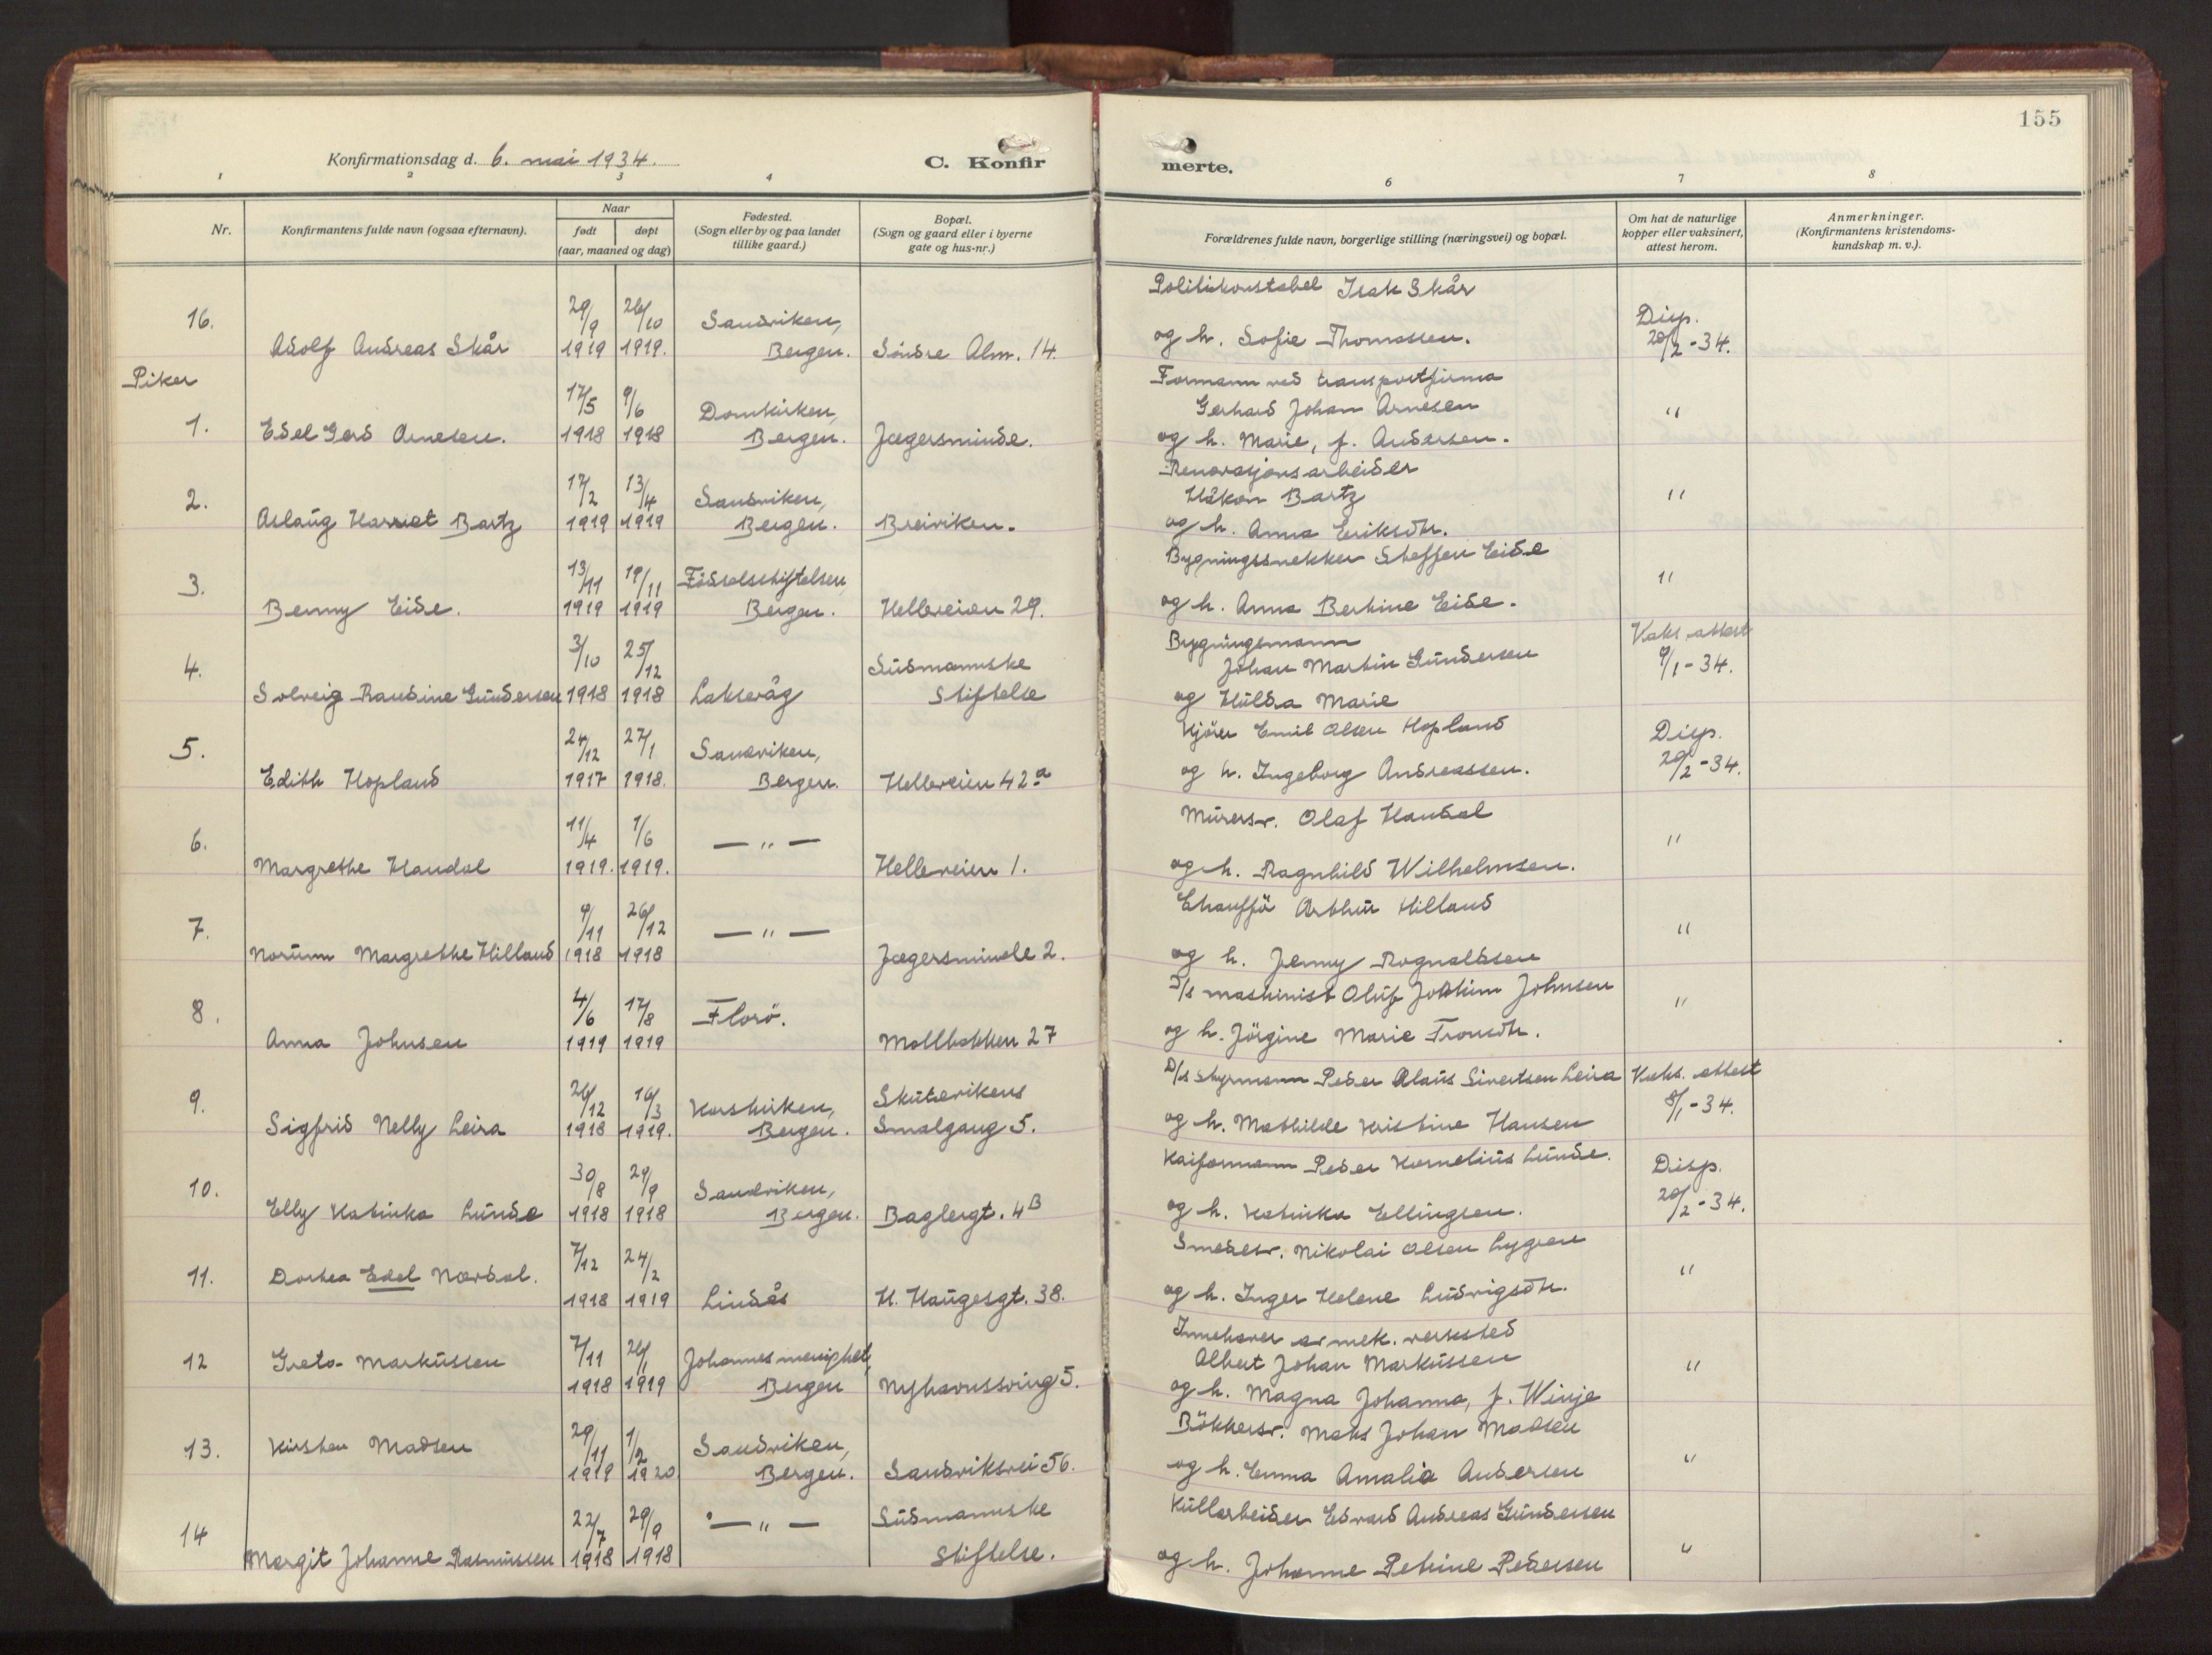 155
Konfirmationsdag d. 6. mai 1934.
C. Konfir
merte.
1 2 3 4 6 7 8
Nr.
Konfirmantens fulde navn (ogsaa efternavn).
Naar
født døpt
(aar, maaned og dag)
Fødested.
(Sogn eller by og paa landet
tillike gaard.)
Bopæl.
(Sogn og gaard eller i byerne
gate og hus-nr.)
Forældrenes fulde navn, borgerlige stilling (næringsvei) og bopæl.
Om hat de naturlige
kopper eller vaksinert,
attest herom.
Anmerkninger.
(Konfirmantens kristendoms-
kundskap m. v.).
Politikonstabel Isak Skår
16. 29/9 26/10 Sandviken, Disp.
Adolf Andreas Skår 1919 1919. Bergen. Söndre Alm. 14. og h. Sofie Thomassen. 20/2-34.
Piker
Formann ved transportfirma
1. 17/5 9/6 Domkirken, Gerhard Johan Arnesen "
Edel Gerd Arnesen. 1918 1918 Bergen. Jægersminde. og h. Marie, f. Andersen.
Renovasjonsarbeider
2. 17/2 13/4 Sandviken, Håkon Bartz "
Aslaug Harriet Bartz 1919 1919 Bergen. Breiviken. og h. Anna Eriksdtr.
3. 13/11 19/11 Födselsstiftelsen, Bygningssnekker Steffen Eide "
Benny Eide. 1919 1919 Bergen. Helleveien 29. og h. Anna Bertine Eide.
Bygningsmann Vaks. attest
4. 3/10 25/12 Südmannske Johan Martin Gundersen 9/1-34.
Solveig Randine Gundersen 1918 1918 Laksevåg Stiftelse og Hulda Marie
5. 24/12 27/1 Sandviken, Kjörer Emil Olsen Hopland Disp.
Edith Hopland 1917 1918. Bergen. Helleveien 42a og h. Ingeborg Andreassen. 20/2-34.
6. 11/4 1/6 — " — Murersv. Olaf Haudal "
Margrethe Haudal 1919. 1919. Helleveien 1. og h. Ragnhild Wilhelmsen.
7. 9/11 26/12 — " — Chauffö Arthur Hilland "
Norunn Margrethe Hilland 1918 1918 Jægersminde 2. og h. Jenny Rognaldsen
8. 4/6 17/8 Florö. D/s maskinist Oluf Joakim Johnsen "
Anna Johnsen 1919 1919 Mollbakken 27 og h. Jörgine Marie Tronsdtr.
9. 26/12 16/3 Korskirken, Skutevikens D/s styrmann Peder Olaus Sivertsen Leira Vaks. attest
Sigfrid Nelly Leira 1918 1919. Bergen. Smalgang 5. og h. Mathilde Kristine Hansen 8/1-34.
10. 30/8 29/9 Sandviken, Kaiformann Peder Kornelius Lunde. Disp.
Elly Katinka Lunde 1918 1918 Bergen. Baglergt. 4B og h. Katinka Ellingsen. 20/2-34.
11. Dorthea Edel Nordal. 7/12 24/2 Smedsv. Nikolai Olsen Lygren "
1918 1919 Lindås H. Haugesgt. 38. og h. Inger Helene Ludvigsdtr.
Innehaver av mek. verksted
12 Greta Markussen 7/11 26/1 Johannes menighet, Albert Johan Markussen "
1918 1919 Bergen Nyhavnssving 5. og h. Magna Johanna, f. Winje
13. Kirsten Madsen 29/11 1/2 Sandviken, Bökkersv. Maks Johan Madsen "
1919 1920 Bergen. Sandviksvei 56. og h. Emma Amalia Andersen
14 22/7 29/9 — " — Südmannske Kullarbeider Edvard Andreas Gundersen "
Margit Johanne Rasmussen 1918 1918 Stiftelse. og h. Johanne Petrine Pedersen